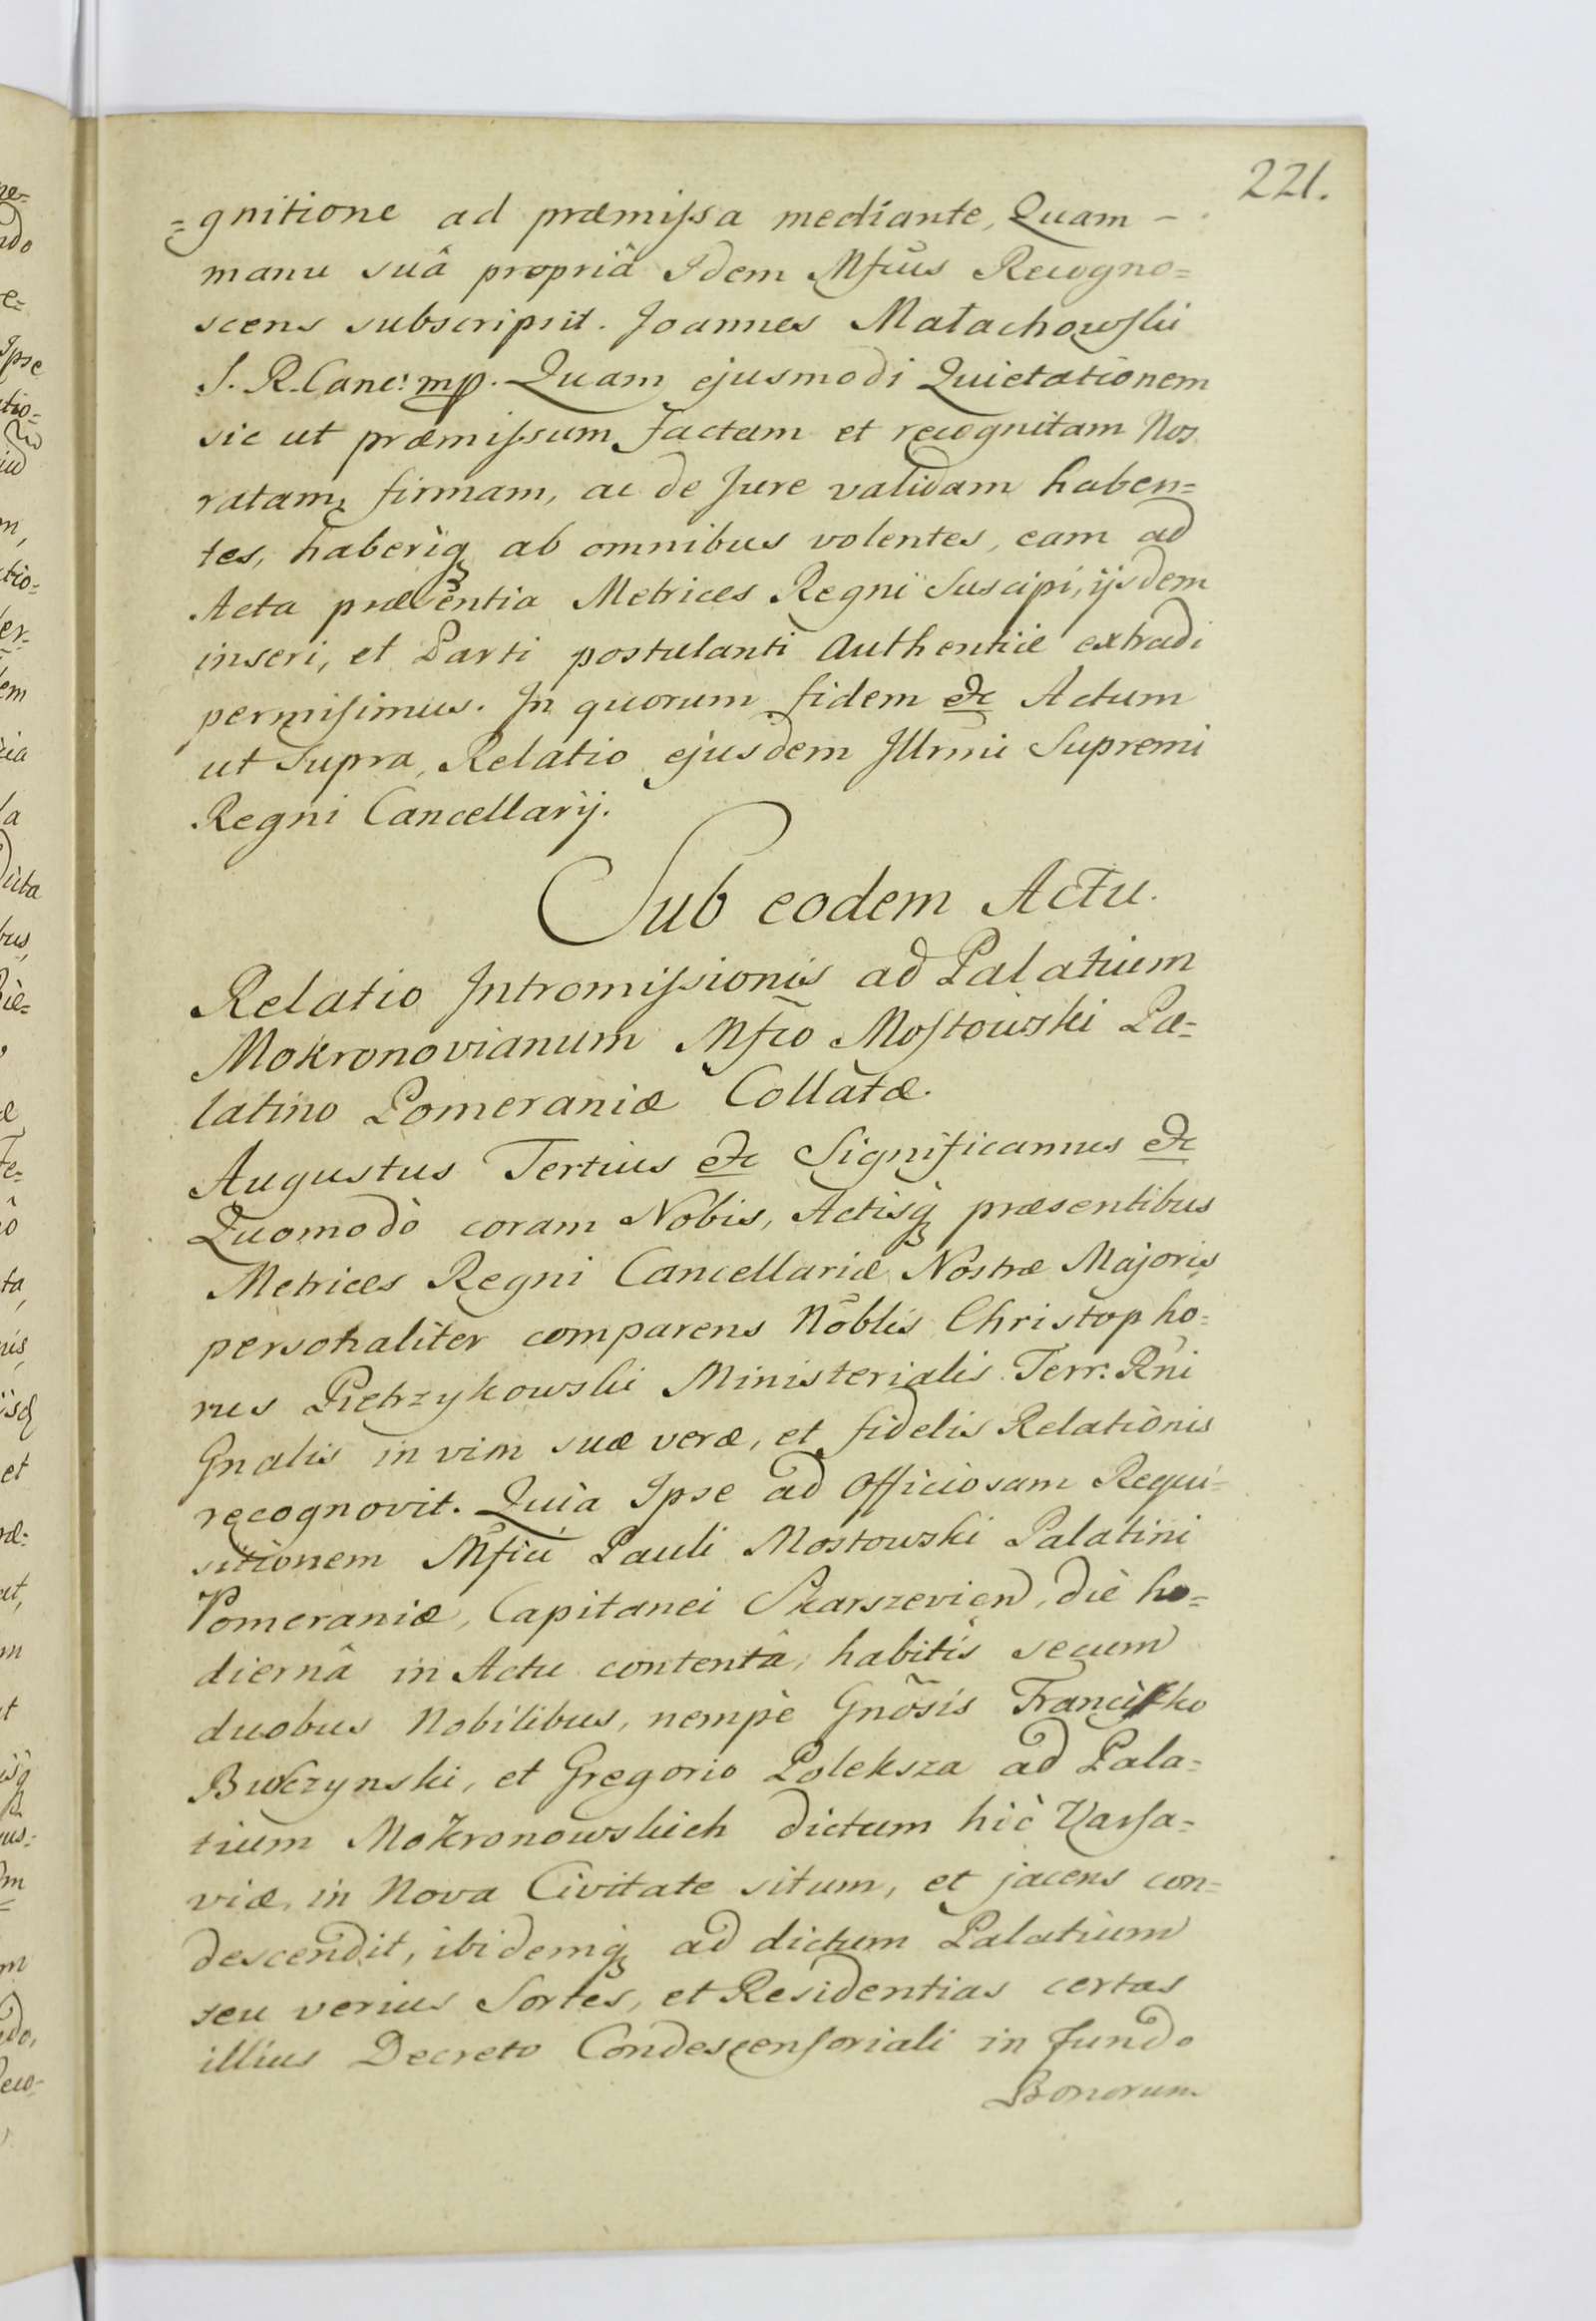 221.
=gnitione ad præmissa mediante, Quam -
manu suâ propriâ Idem Mfcus Recogno=
scens subscripsit. Joannes Małachowski
S. R. Canc: mp. Quam ejusmodi Quietationem
sic ut præmissum factam et recognitam Nos
ratam, firmam, ac de Jure validam haben=
tes, haberiq ab omnibus volentes, eam ad
Acta præsentia Metrices Regni Suscipi, ijsdem
inseri, et Parti postulanti Authentice extradi
permisimus. In quorum fidem etc Actum
ut supra, Relatio ejusdem Illrmi Supremi
Regni Cancellarij.
Sub eodem Actu.
Relatio Intromissionis ad Palatium
Mokronovianum Mfco Mostowski Pa=
latino Pomeraniæ Collatæ.
Augustus Tertius etc Significamus etc
Quomodò coram Nobis, Actisq præsentibus
Metrices Regni Cancellariæ Nostræ Majoris
personaliter comparens Nõblis Christopho=
rus Pietrzykowski Ministerialis Terr: Rñi
Gnalis in vim suæ veræ, et fidelis Relationis
recognovit. Quia Ipse ad Officiosam Requi=
sitionem Mfici Pauli Mostowski Palatini
Pomeraniæ, Capitanei Skarszevien, die ho=
diernâ in Actu contentâ, habitis secum
duobus Nobilibus, nempè Gnõsis Francisko
Bukczynski, et Gregorio Poleksza ad Pala=
tium Mokronowskich dictum hic Varsa=
viæ, in Nova Civitate situm, et jacens con=
descendit, ibidemq ad dictum Palatium
seu verius Sortes, et Residentias certas
illius Decreto Condescensoriali in fundo
Bonorum